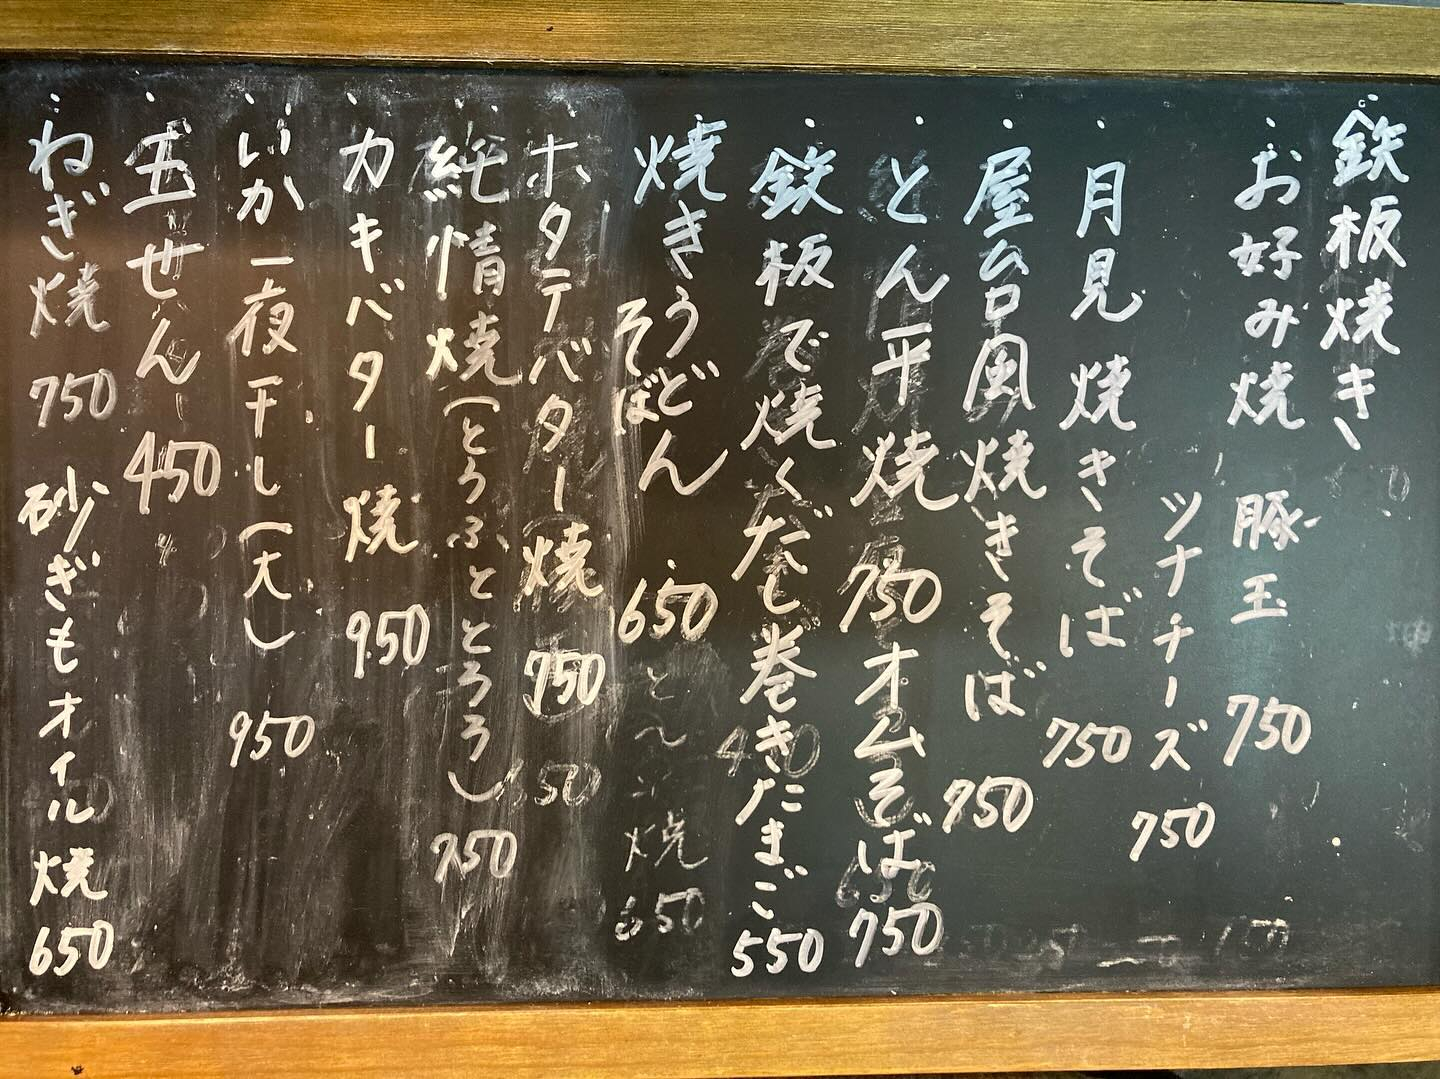 鉄板焼き
お好み焼 豚玉 750
ツナチーズ 750
月見焼きそば 750
屋台風焼きそば 750
とん平焼 750 オムそば 750
鉄板で焼くだし巻きたまご 550
焼きうどん 650
そば
ホタテバター焼 750
純情焼(とうふととろろ) 750
カキバター焼 950
いか一夜干し(大) 950
玉せん 450
ねぎ焼 750 砂ぎもオイル焼 650